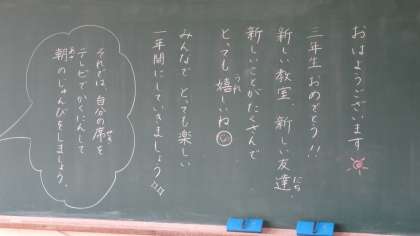 おはようございます
三年生おめでとう!!
新しい教室、新しい友達、
新しいことがたくさんで
とっても嬉しいね
みんなで とっても楽しい
一年間にしていきましょう
それでは、自分の席を
テレビでかくにんして
朝のじゅんびをしましょう。